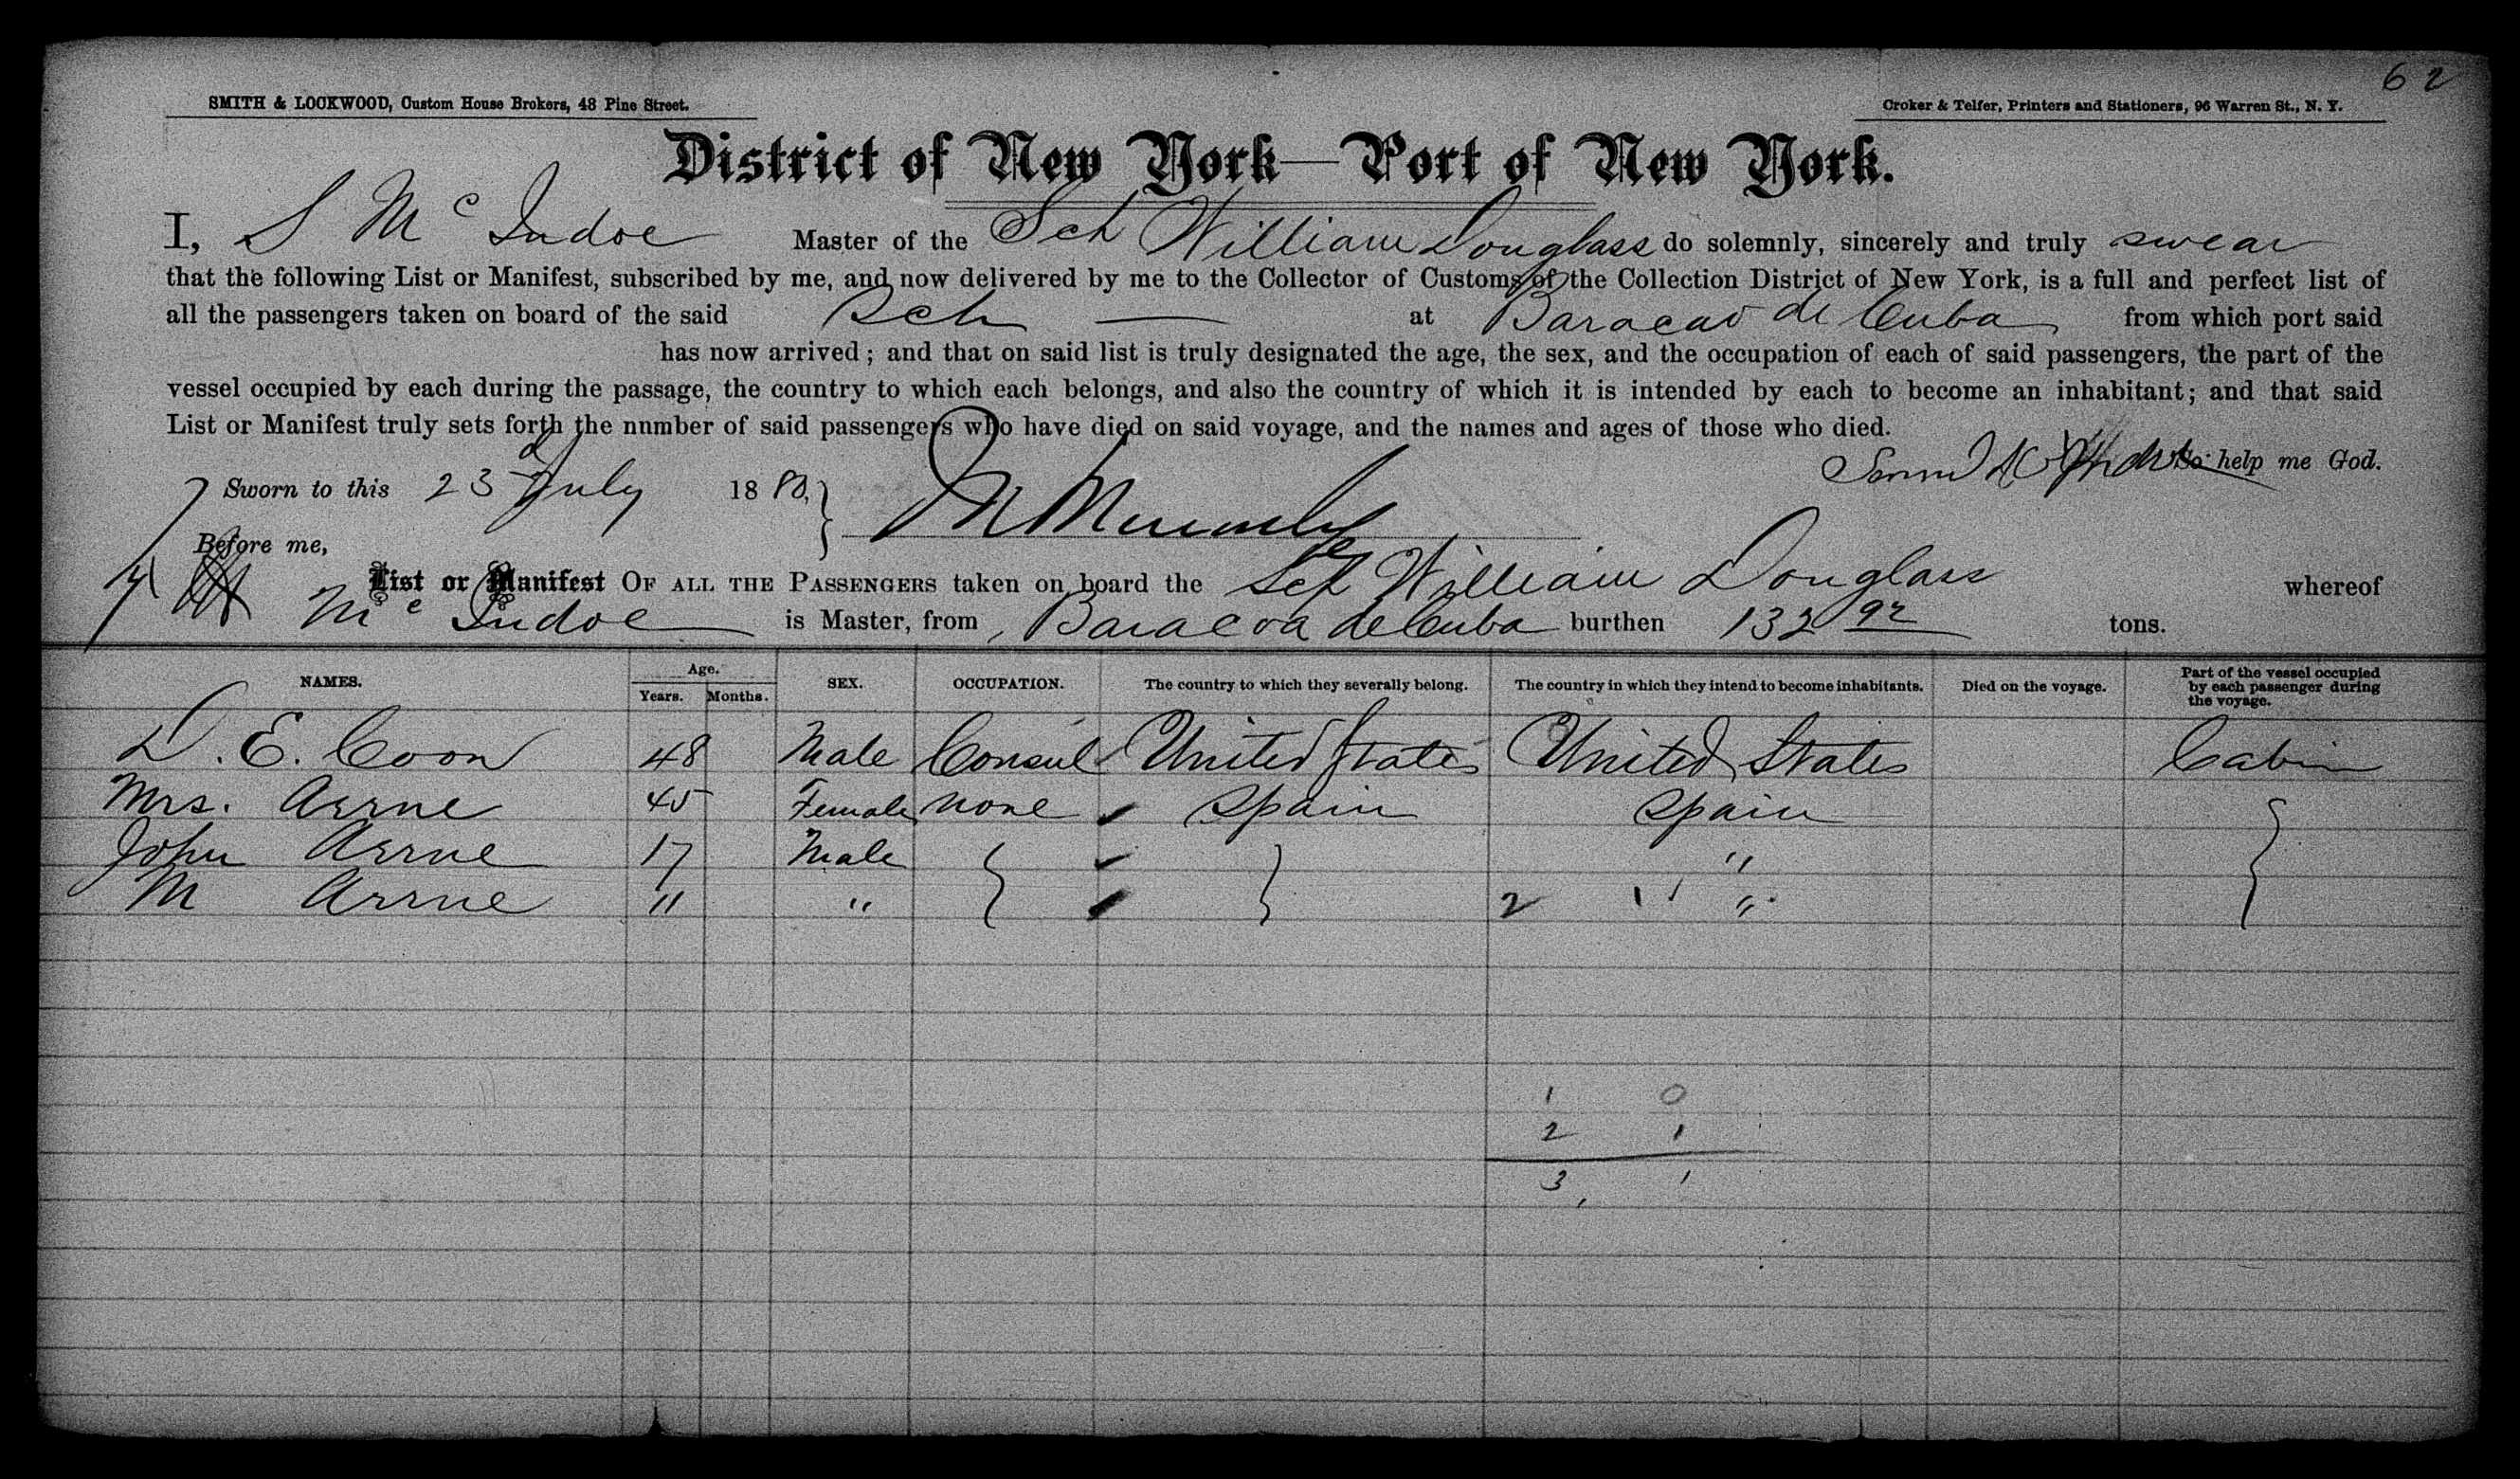 62
SMITH & LOCKWOOD, Custom House Brokers, 48 Pine Street.
Croker & Telfer, Printers and Stationers, 96 Warren St., N. Y.
District of New York—Port of New York.
I, S Mc Indoe Master of the Sch William Douglass do solemnly, sincerely and truly swear
that the following List or Manifest, subscribed by me, and now delivered by me to the Collector of Customs of the Collection District of New York, is a full and perfect list of
all the passengers taken on board of the said Sch — at Baracao de Cuba from which port said
has now arrived; and that on said list is truly designated the age, the sex, and the occupation of each of said passengers, the part of the
vessel occupied by each during the passage, the country to which each belongs, and also the country of which it is intended by each to become an inhabitant; and that said
List or Manifest truly sets forth the nnmber of said passengers who have died on said voyage, and the names and ages of those who died.
So help me God.
Sworn to this 23d July 1880,
Before me,
List or Manifest OF ALL THE PASSENGERS taken on board the Sch William Douglass whereof
Mc Indoe is Master, from Baracoa de Cuba burthen 132 92 tons.
NAMES. Age. Years. Months. SEX. OCCUPATION. The country to which they severally belong. The country in which they intend to become inhabitants. Died on the voyage. Part of the vessel occupied by each passenger during the voyage.
D. E. Coon 48 Male Consul United States United States Cabin
Mrs. Arrue 45 Female none Spain Spain
John Arrue 17 Male "
M Arrue " " 2 1 1 "
1 0
2 1
3 1